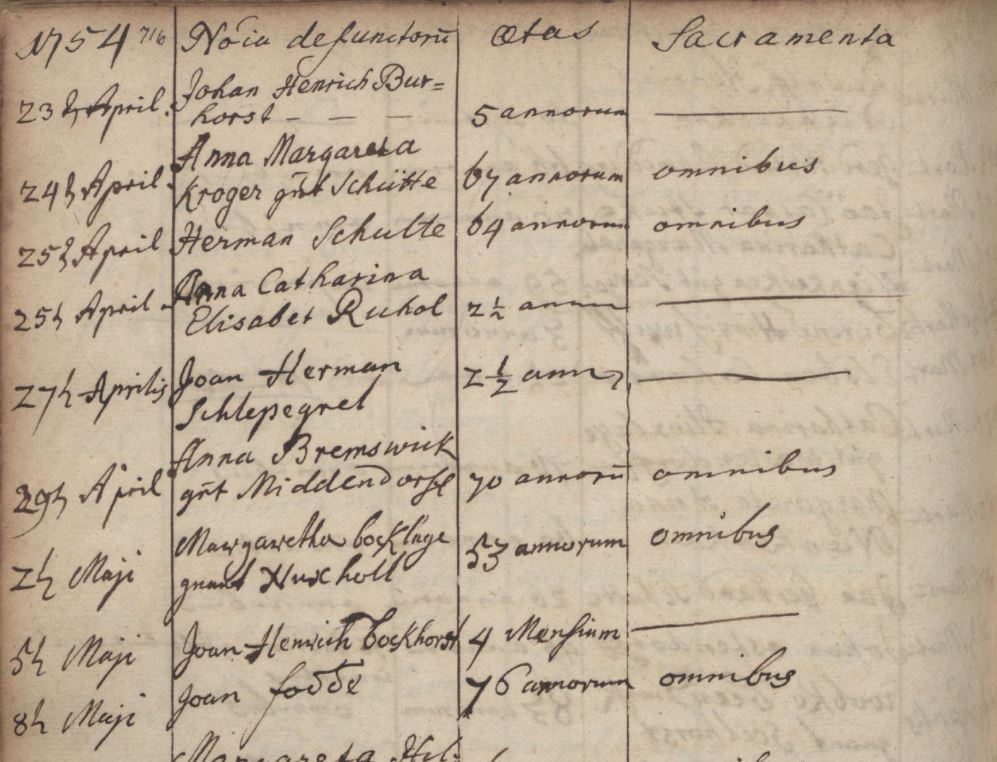 1754 716 Nōia defunctorū ætas Sacramenta
23 April. Johan Henrich Bur=
horst - — - 5 annorum
24 April. Anna Margareta
Kroger gnt Schütte 67 annorum omnibus
25 April Herman Schulte 64 annorum omnibus
25 April Anna Catharina
Elisabet Ruhol 2½ ann
27 Aprilis Joan Herman
Schlepegrel 2½ ann
29 April Anna Bremswick
gnt Middendorf 70 annorū omnibus
2 Maji Margaretha bocklage
gnant Huxholl 53 annorum omnibus
5 Maji Joan Henrich bockhorst 4 Mensium
8 Maji Joan fodde 76 annorum omnibus
Margareta Hel-